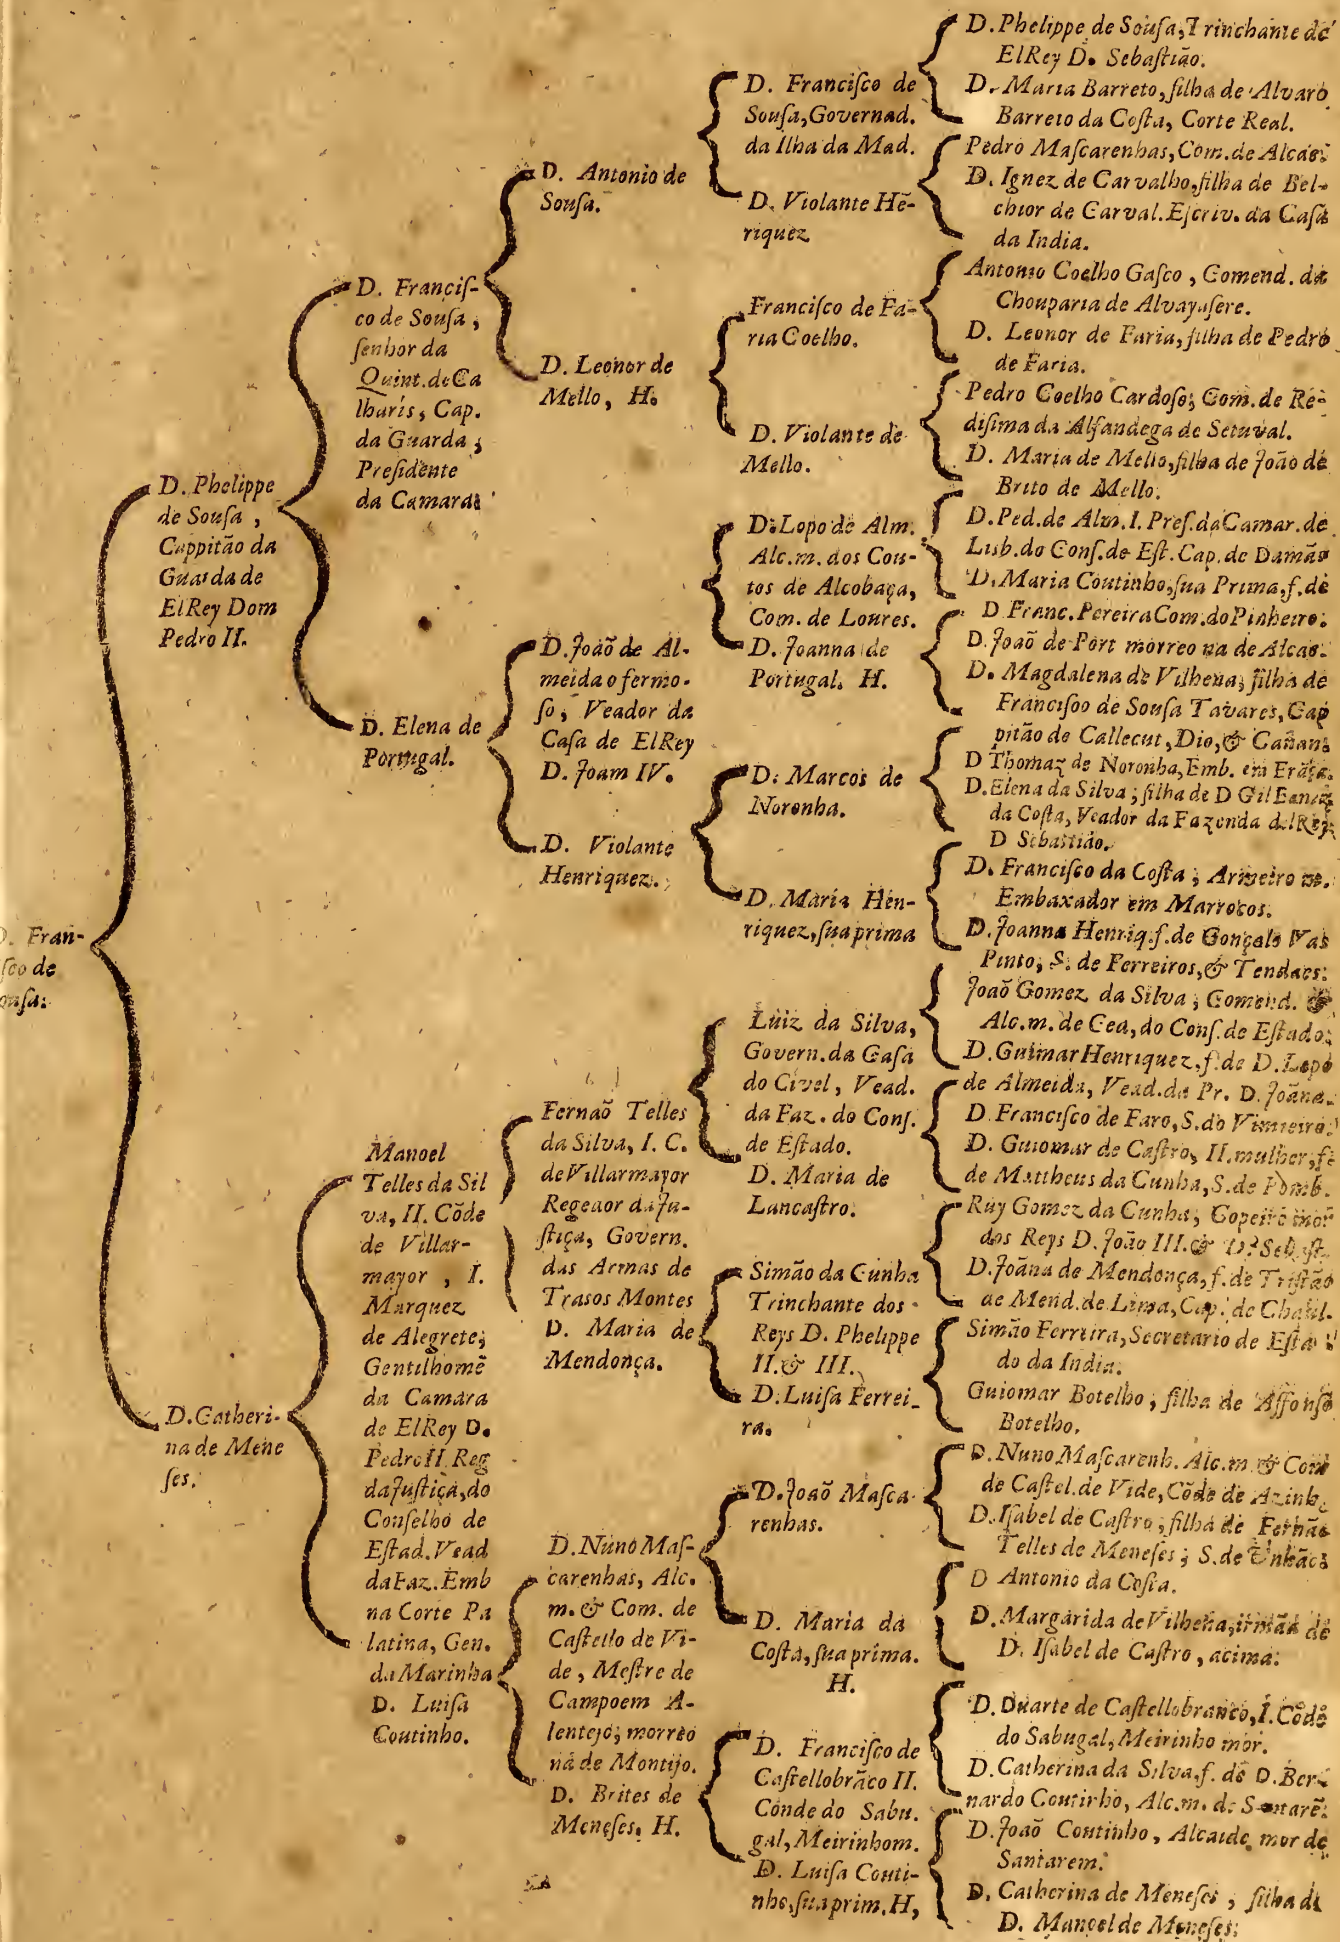 D. Fran-
ſco de
ouſa:
D. Phelippe
de Souſa,
Cappitão da
Guarda de
ElRey Dom
Pedro II.
D. Catheri-
na de Mene
ſes.
D. Franciſ-
co de Souſa,
ſenhor da
Quint. de Ca
lharis, Cap.
da Guarda,
Preſidente
da Camara:
D. Elena de
Portugal.
Manoel
Telles da Sil
va, II. Cõde
de Villar-
mayor, I.
Marquez
de Alegrete,
Gentilhomẽ
da Camara
de ElRey D.
Pedro II. Reg
da Juſtiça, do
Conſelho de
Eſtad. Vead
da Faz. Emb
na Corte Pa
latina, Gen.
da Marinha
D. Luiſa
Coutinho.
D. Antonio de
Souſa.
D. Leonor de
Mello, H.
D. Joaõ de Al-
meida o fermo-
ſo, Veador da
Caſa de ElRey
D. Joam IV.
D. Violante
Henriquez.
Fernaõ Telles
da Silva, I. C.
de Villarmayor
Regedor da Ju-
ſtiça, Govern.
das Armas de
Trasos Montes
D. Maria de
Mendonça.
D. Nuno Maſ-
carenhas, Alc.
m. & Com. de
Caſtello de Vi-
de, Meſtre de
Campo em A-
lentejo, morreo
na de Montijo.
D. Brites de
Meneſes. H.
D. Franciſco de
Souſa, Governad.
da Ilha da Mad.
D. Violante Hẽ-
riquez
Franciſco de Fa-
ria Coelho.
D. Violante de
Mello.
D. Lopo de Alm.
Alc. m. dos Cou-
tos de Alcobaça,
Com. de Loures.
D. Joanna de
Portugal. H.
D. Marcos de
Noronha.
D. Maria Hen-
riquez, ſua prima
Luiz da Silva,
Govern. da Caſa
do Civel, Vead.
da Faz. do Conſ.
de Eſtado.
D. Maria de
Lancaſtro.
Simão da Cunha
Trinchante dos
Reys D. Phelippe
II. & III.
D. Luiſa Ferrei-
ra.
D. Joaõ Maſca-
renhas.
D. Maria da
Coſta, ſua prima.
H.
D. Franciſco de
Caſtellobrãco II.
Conde do Sabu-
gal, Meirinho m.
D. Luiſa Couti-
nho, ſua prim. H,
D. Phelippe de Souſa, Trinchante de
ElRey D. Sebaſtião.
D. Maria Barreto, filha de Alvaro
Barreto da Coſta, Corte Real.
Pedro Maſcarenhas, Com. de Alcac.
D. Ignez de Carvalho, filha de Bel-
chior de Carval. Eſcriv. da Caſa
da India.
Antonio Coelho Gaſco, Comend. da
Chouparia de Alvayaſere.
D. Leonor de Faria, filha de Pedro
de Faria.
Pedro Coelho Cardoſo, Com. de Re-
diſima da Alfandega de Setuval.
D. Maria de Mello, filha de João de
Brito de Mello.
D. Ped. de Alm. I. Preſ. da Camar. de
Lisb. do Conſ. de Eſt. Cap. de Damão
D. Maria Coutinho, ſua Prima, f. de
D. Franc. Pereira Com. do Pinheiro.
D. Joaõ de Port morreo na de Alcac.
D. Magdalena de Vilhena, filha de
Franciſco de Souſa Tavares, Cap
pitão de Callecut, Dio, & Canan.
D Thomaz de Noronha, Emb. em Frãça.
D. Elena da Silva, filha de D Gil Eannes
da Coſta, Veador da Fazenda delRey
D Sebaſtião.
D. Franciſco da Coſta, Armeiro m.
Embaxador em Marrocos.
D. Joanna Henriq. f. de Gonçalo Vas
Pinto, S. de Ferreiros, & Tendaes.
Joaõ Gomez da Silva, Comend. &
Alc. m. de Cea, do Conſ. de Eſtado.
D. Guimar Henriquez, f. de D. Lopo
de Almeida, Vead. da Pr. D. Joãna.
D. Franciſco de Faro, S. do Vimieiro.
D. Guiomar de Caſtro, II. mulher, f.
de Mattheus da Cunha, S. de Pomb.
Ruy Gomez da Cunha, Copeiro mor
dos Reys D. João III. & D. Sebaſt.
D. Joãna de Mendonça, f. de Triſtão
de Mend. de Lima, Cap. de Chaul.
Simão Ferreira, Secretario de Eſta
do da India.
Guiomar Botelho, filha de Affonſo
Botelho.
D. Nuno Maſcarenh. Alc. m. & Com
de Caſtel. de Vide, Cõde de Azinh.
D. Iſabel de Caſtro, filha de Fernão
Telles de Meneſes, S. de Unhão
D Antonio da Coſta.
D. Margarida de Vilhena, irmãa de
D. Iſabel de Caſtro, acima.
D. Duarte de Caſtellobranco, I. Cõde
do Sabugal, Meirinho mor.
D. Catherina da Silva, f. de D. Ber-
nardo Coutinho, Alc. m. de Santarẽ.
D. Joaõ Coutinho, Alcaide mor de
Santarem.
D. Catherina de Meneſes, filha de
D. Manoel de Meneſes.